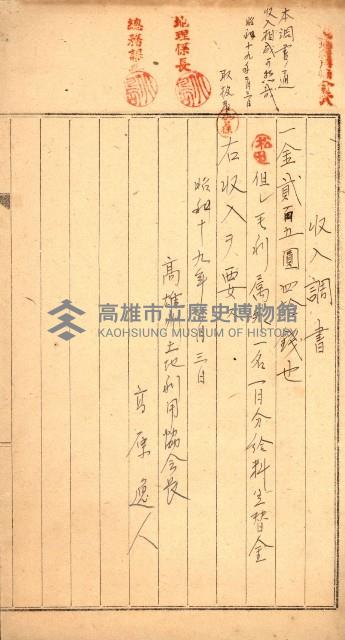 本調書ノ通
收入相成可然哉
昭和十九年 月三日
取扱
地理係長
總務課
收入調書
一金貳百五圓四拾錢也
松田
但シ毛利属外一名一月分給料立替金
右收入ヲ要ス
昭和十九年 月三日
高雄州土地利用協会長
高原逸人
高雄市立歷史博物館
KAOHSIUNG MUSEUM OF HISTORY